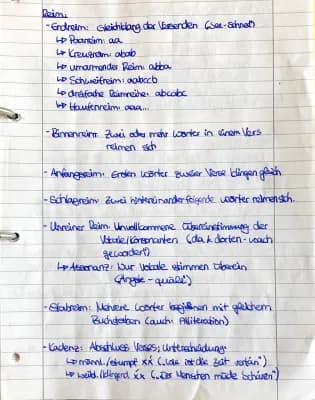 Reim:
- Endreim: Gleichklang der Versenden
↳ Paarreim: aa
↳ Kreuzreim: abab
↳ umarmender Reim: abba
↳ Schweifreim: aabccb
↳ dreifache Reimreihe: abcabc
↳ Haufenreim: aaa...
- Binnenreim: Zwei oder mehr Wörter in einem Vers
reimen sich
- Anfangsreim: Ersten Wörter zweier Verse klingen gleich
- Schlagreim: Zwei hintereinander folgende Wörter reimen sich.
- Unreiner Reim: Unvollkommene Übereinstimmung der
Vokale/Konsonanten
↳ Assonanz: Nur Vokale stimmen überein
("Ängste - quäle")
- Stabreim: Mehrere Wörter beginnen mit gleichem
Buchstaben (auch: Alliteration)
- Kadenz: Abschluss Verses; Unterscheidung:
↳ männl./stumpf: xx́ ist die Zeit
↳ weibl./klingend: x́x Menschen müde